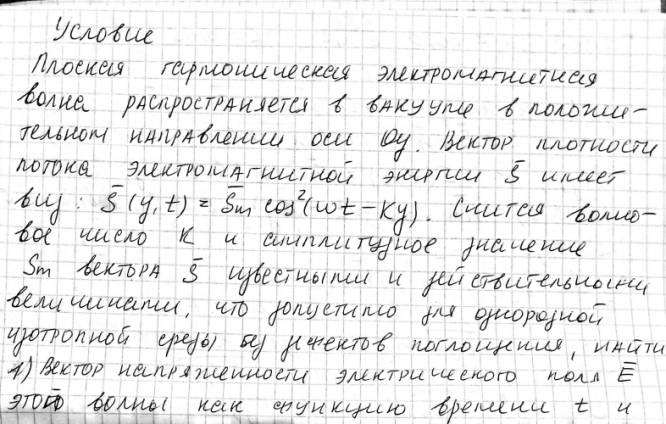 Условие
Плоская гармоническая электромагнитная
волна распространяется в вакууме в положи-
тельном направлении оси Oy. Вектор плотности
потока электромагнитной энергии S̄ имеет
вид: S̄(y,t) = S̄m cos²(ωt - Ky). Считая волно-
вое число K и амплитудное значение
Sm вектора S̄ известными и действительными
величинами, что допустимо для однородной
изотропной среды без эффектов поглощения, найти
1) Вектор напряженности электрического поля Ē
этой волны как функцию времени t и